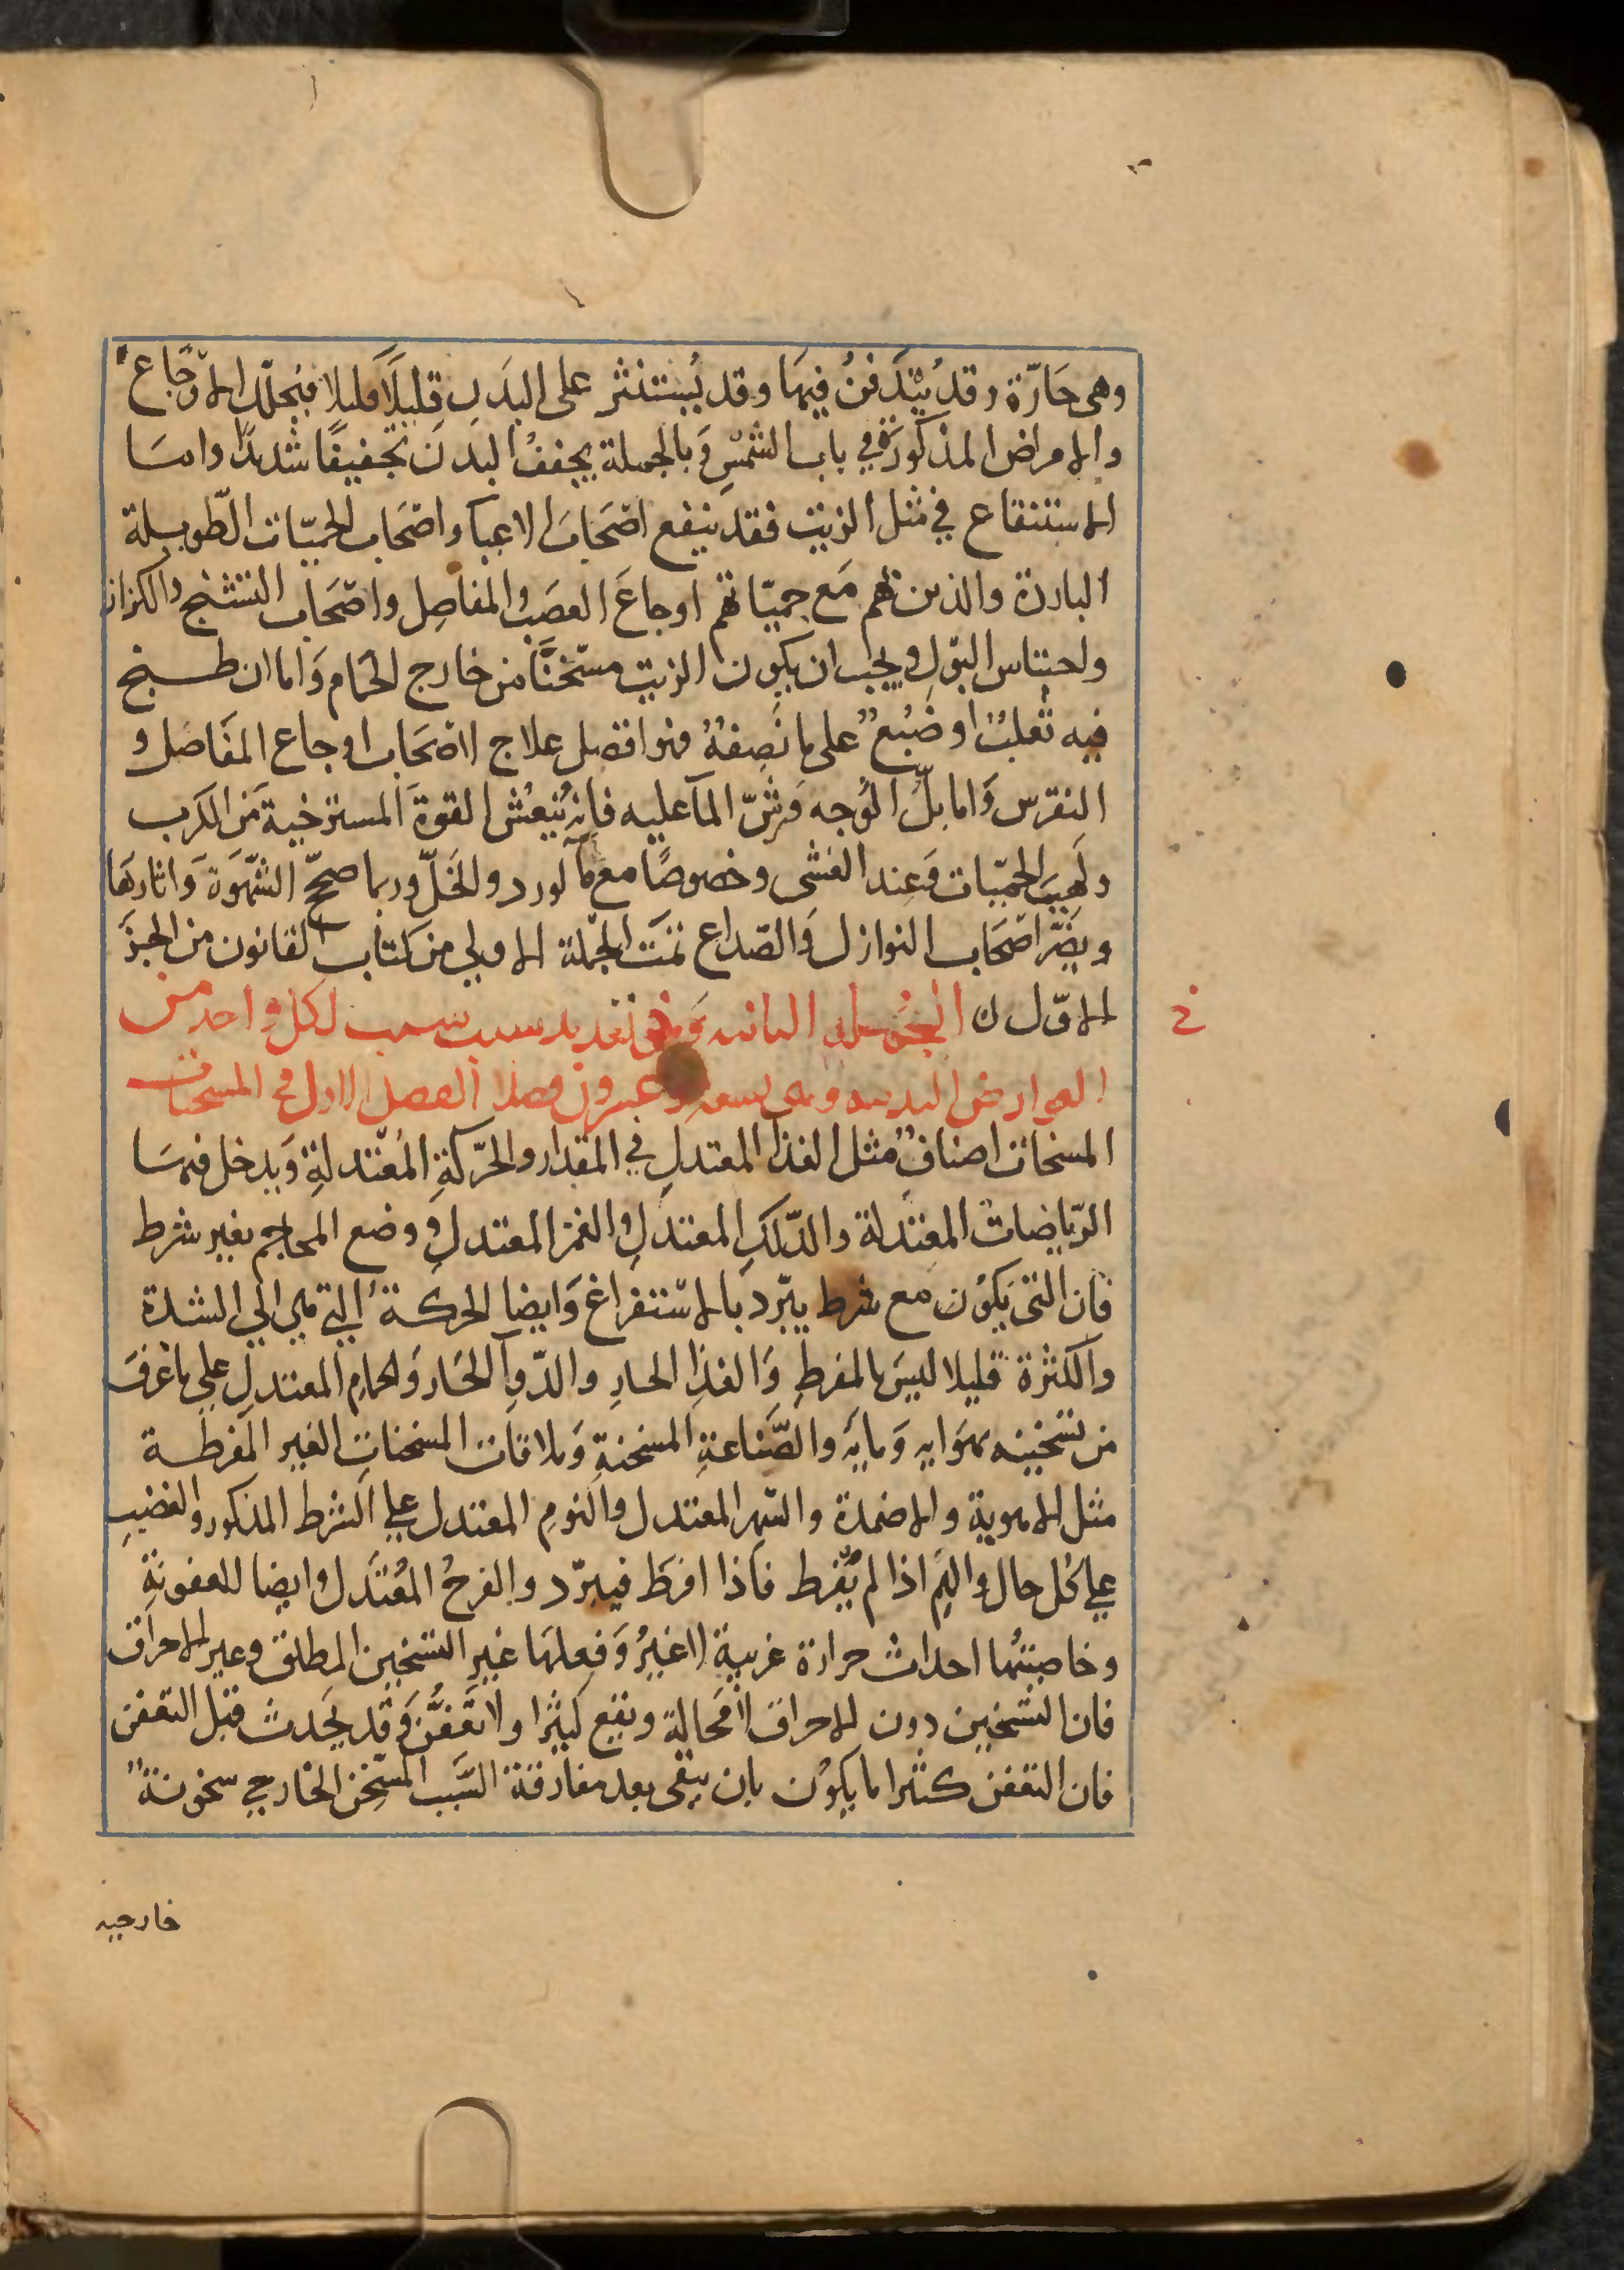 وهى حَارّة وقد يُتَدَفنُ فيهَا وقد يُستنثر على البَدَن قليلًا قليلا فيحلّل الاوجَاع
والامراض المذكورة في باب الشمسِ وَبالجملة يجففُ البدن تجفيفًا شديدًا وامَا
الاستنقاع في مثل الزيت فقد ينفع اصحَابَ الاعيا واصحَاب الحميّات الطّويلة
البادرة والذين بهم مَع حميّاتهم اوجاعَ العصَب والمفاصِل واصحَاب التشنج والكزاز
واحتباس البَول ويجب ان يكون الزيت مسخّنًا من خارج الحمام وَاما ان طبخ
فيه ثعلبٌ او ضبُعٌ على ما نَصِفهُ فهو افضل علاج لاصحَاب اوجاع المفَاصل و
النقرس وَاما بلُّ الوجه وَرشّ المآ عليه فانه يُنعُش القوةَ المسترخيةَ من الكرب
ولَهيبَ الحميّات وَعند الغشى وخصوصًا مع مآ لورد والخَلّ وربما صحّح الشهوَة وَاثارهَا
ويضرّ اصحَاب النوازل وَالصّداع تمّت الجملة الاولي من كتاب القانون من الجزءَ
الاوّل ن الجملة الثانيه وَهى تعديد سبب سبب لكل واحد من
خ
العوارض البدنيه وهى تسعة وعشرون فصلا الفصل الاول فى المسخنات
المسخات اصنافٌ مثل الغذا المعتدل في المقدار والحرّكةِ المُعتدلةِ وَيدخل فيهَا
الرّياضات المعتدلة والدّلكِ المعتدلِ والغمز المعتدلِ ووضع المحاجم بغير شرط
فان التى يكون مع شرط يبرّد بالاستفراغ وَايضا الحركة التي هي الي الشدة
والكثرة قليلا ليسَ بالمفرطِ وَالغذا الحارِ والدّوآ الحَار وَالحمامِ المعتدلِ علي ما عُرفَ
من تسخينه بهوَايه وَمايه والصّناعةِ المسخنةِ وَملاقات المسخناتِ الغير المفرطة
مثل الاهوية والاضمدة والسّهر المعتدل والنوم المعتدل علي الشرط المذكور والغضبِ
علي كل حال والهم اذا لم يُفرط فاذا افرطَ فيبرّد والفرحُ المُعتَدل وايضا للعفونةِ
وخاصيتُها احداث حرارة غريبة لا غيرُ وَفعلهَا غير التسخين المطلق وغير الاحراق
فان التسخين دون الاحراق لا محَالة ويقع كثيرًا ولا تعَفُّنَ وَقد يَحدث قبل التعفن
فان التعفن كثيرا ما يكون بان يبقى بعد مفارقة السَّبب المسَخّن الخارجي سخونةٌ
خارجيه